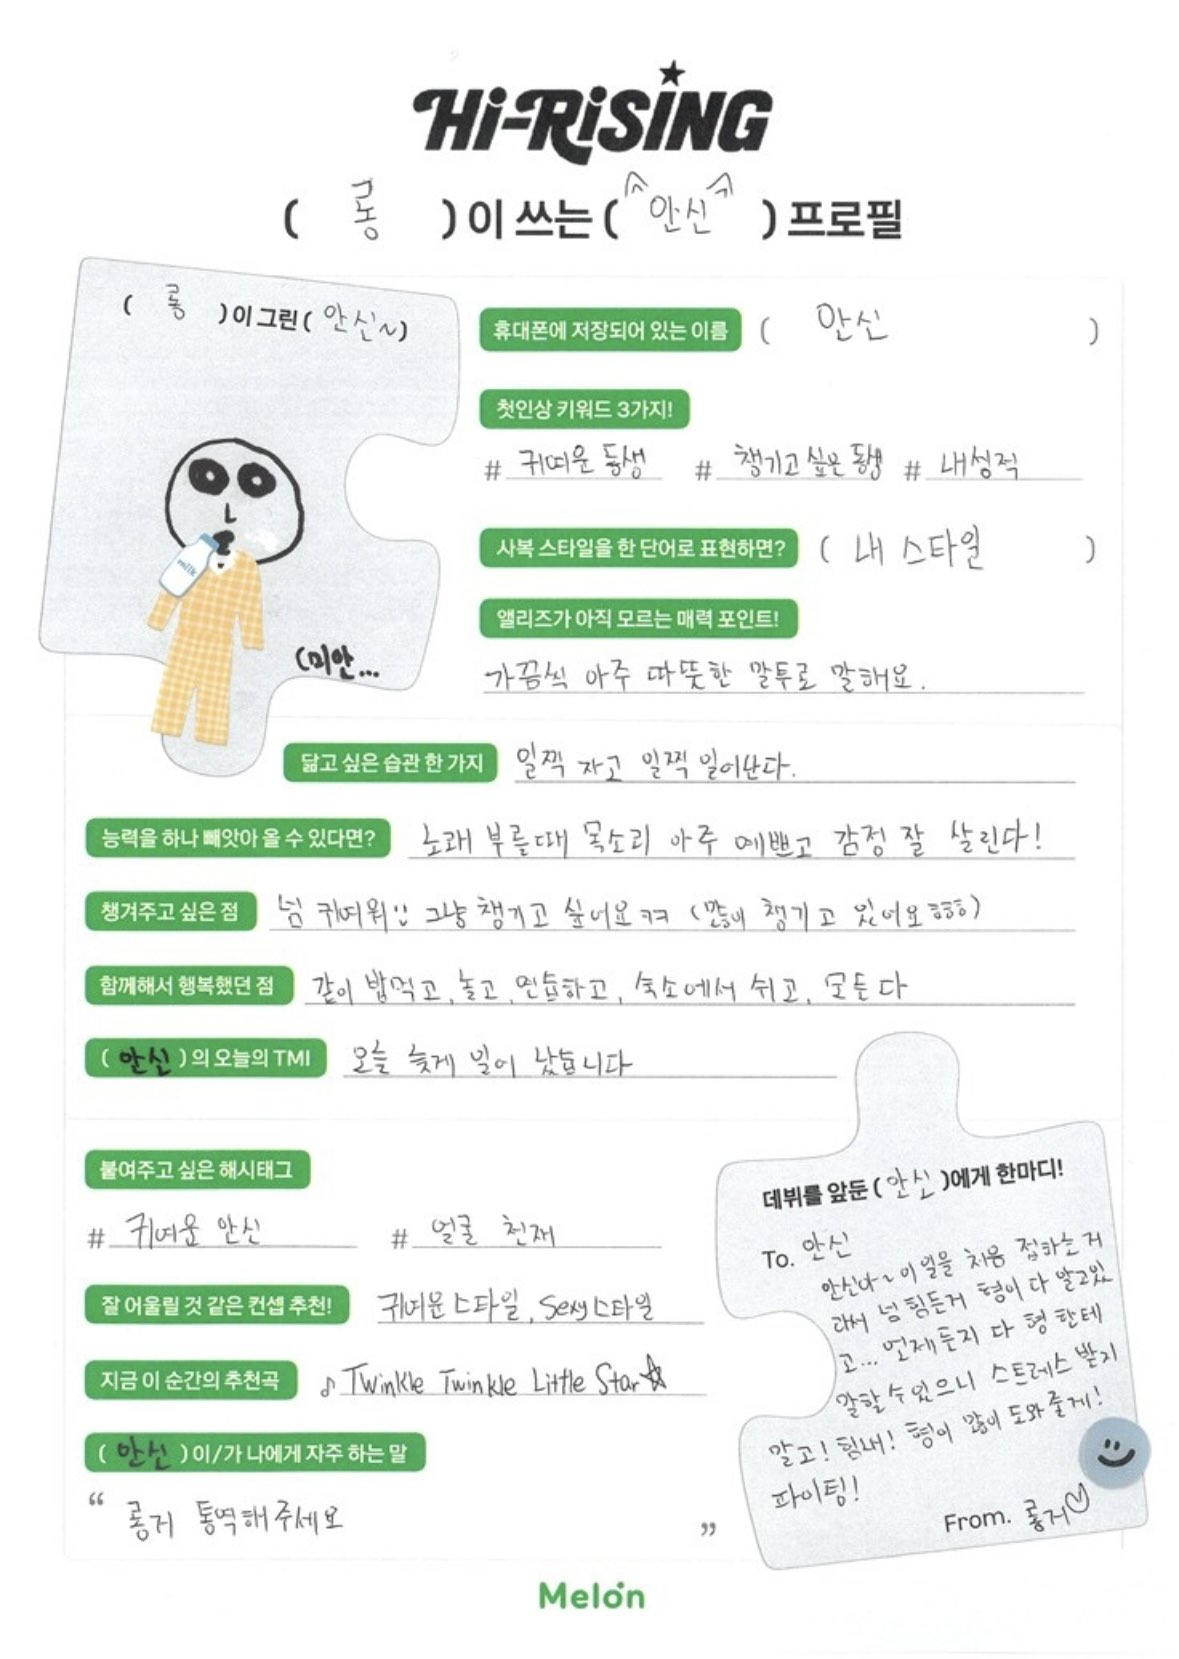 Hi-RiSiNG
( 롱 )이 쓰는 ( 안신 ) 프로필
( 롱 )이 그린 ( 안신~)
milk
(미안...
휴대폰에 저장되어 있는 이름 ( 안신 )
첫인상 키워드 3가지!
# 귀여운 동생 # 챙기고 싶은 동생 # 내성적
사복 스타일을 한 단어로 표현하면? ( 내 스타일 )
앨리즈가 아직 모르는 매력 포인트!
가끔씩 아주 따뜻한 말투로 말해요.
닮고 싶은 습관 한 가지 일찍 자고 일찍 일어난다.
능력을 하나 빼앗아 올 수 있다면? 노래 부를때 목소리 아주 예쁘고 감정 잘 살린다!
챙겨주고 싶은 점 넘 귀여워 그냥 챙기고 싶어요 ㅋㅋ (많이 챙기고 있어요 ㅎㅎㅎ)
함께해서 행복했던 점 같이 밥먹고, 놀고, 연습하고, 숙소에서 쉬고, 모든 다
( 안신 )의 오늘의 TMI 오늘 늦게 일어 났습니다
붙여주고 싶은 해시태그
# 귀여운 안신 # 얼굴 천재
잘 어울릴 것 같은 컨셉 추천! 귀여운 스타일, Sexy 스타일
지금 이 순간의 추천곡 ♪ Twinkle Twinkle Little Star ☆
( 안신 )이/가 나에게 자주 하는 말
“ 롱거 통역해 주세요 ”
데뷔를 앞둔 ( 안신 )에게 한마디!
To. 안신
안신아~ 이 일을 처음 접하는 거
라서 넘 힘든거 형이 다 알고있
고... 언제든지 다 형 한테
말할 수 있으니 스트레스 받지
말고! 힘내! 형이 많이 도와줄게!
파이팅!
From. 롱거♡
Melon